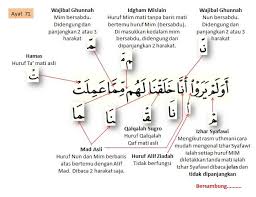 Ayat 71
Wajibal Ghunnah
Mim bersabdu.
Didengung dan
panjangkan 2
harakat
مّ
Idgham Mislain
Huruf Mim mati tanpa baris mati
bertemu huruf Mim (bersabdu).
Di masukkan kedalam mim
bersabdu, didengung dan
dipanjangkan 2 harakat.
Wajibal Ghunnah
Nun bersabdu.
Didengung dan
panjangkan 2
harakat
نّ
Hamas
Huruf Ta' mati asli
أَوَلَمْ يَرَوْا أَنَّا خَلَقْنَا لَهُم مِّمَّا عَمِلَتْ
Mad Asli
Huruf Nun dan Mim berbaris
atas bertemu dengan Alif
Mad. Dibaca 2 harakat saja.
Qalqalah Sugro
Huruf
Qaf mati asli
Huruf Alif Ziadah
Tidak berfungsi
Izhar Syafawi
Mengikut rasm uthmani cara
mudah mengenal Izhar Syafawi
ialah setiap huruf MIM
diletakkan tanda mati ialah
Izhar Syafawi dibaca jelas dan
tidak dipanjangkan
Bersambung..........